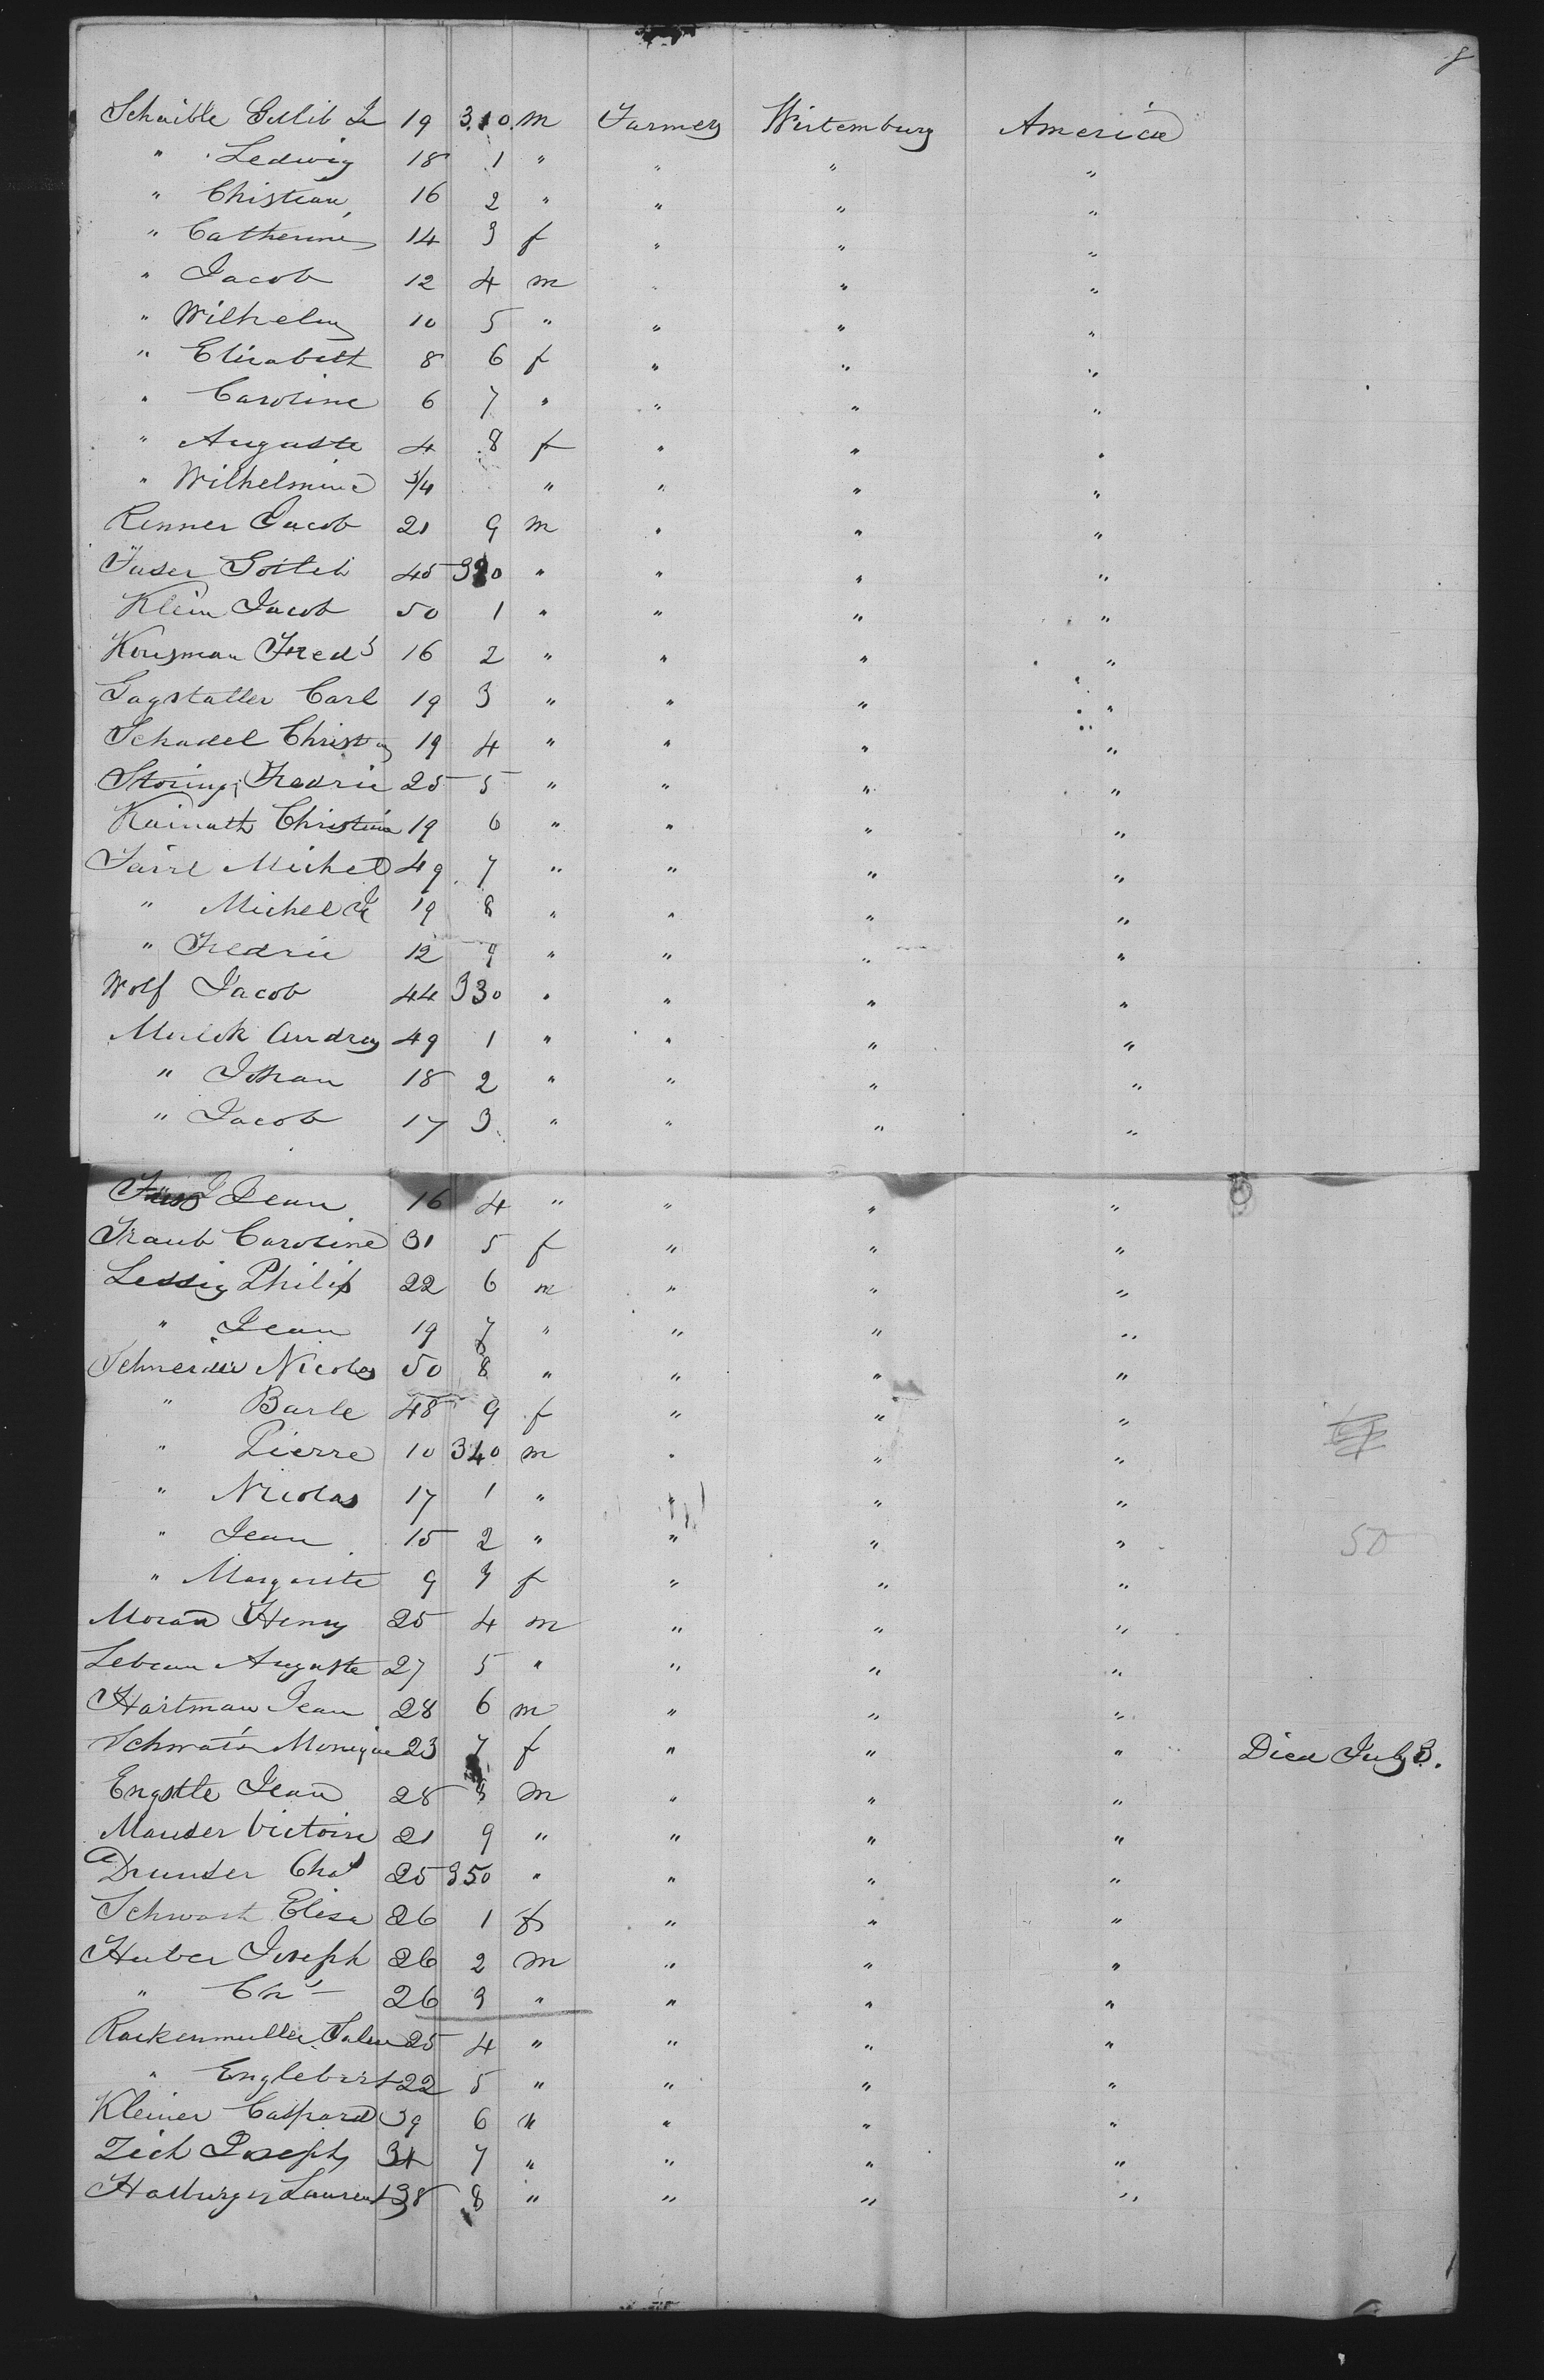 8
Schaible Gotlib Jr 19 310 m Farmer Wirtemburg America
" Ledwig 18 1 " " " "
" Christian 16 2 " " " "
" Catherine 14 3 f " " "
" Jacob 12 4 m " " "
" Wilhelm 10 5 " " " "
" Elizabeth 8 6 f " " "
" Caroline 6 7 " " " "
" Auguste 4 8 f " " "
" Wilhelmine 3/4 " " " "
Renner Jacob 21 9 m " " "
Gotleb 45 320 " " " "
Klein Jacob 50 1 " " " "
Fred 16 2 " " " "
Gagstatter Carl 19 3 " " " "
Schadel Christian 19 4 " " " "
Fredric 25 5 " " " "
Kainath Christian 19 6 " " " "
Michel 49 7 " " " "
" Michel Jr 19 8 " " " "
" Fredric 12 9 " " " "
Wolf Jacob 44 330 " " " "
Andreas 49 1 " " " "
" Johan 18 2 " " " "
" Jacob 17 3 " " " "
Jean 16 4 " " " "
Traub Caroline 31 5 f " " "
Lessig Philip 22 6 m " " "
" Jean 19 7 " " " "
Schneider Nicolas 50 8 " " " "
" Barbe 48 9 f " " "
" Pierre 10 340 m " " "
" Nicolas 17 1 " " " "
" Jean 15 2 " " " " 50
" Margarite 9 3 f " " "
Henry 25 4 m " " "
Lebeau Auguste 27 5 " " " "
Hartman Jean 28 6 m " " "
Monique 23 7 f " " " Died July 3.
Engstle Jean 28 8 m " " "
Mauser Victoire 21 9 " " " "
Chas 25 350 " " " "
Elise 26 1 f " " "
Huber Joseph 26 2 m " " "
" 26 3 " " " "
Rackenmuller 25 4 " " " "
" Englebert 22 5 " " " "
Kleiner Caspard 39 6 " " " "
Zich Joseph 34 7 " " " "
Laurent 38 8 " " " "